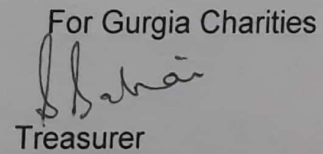 For Gurgia Charities
Treasurer